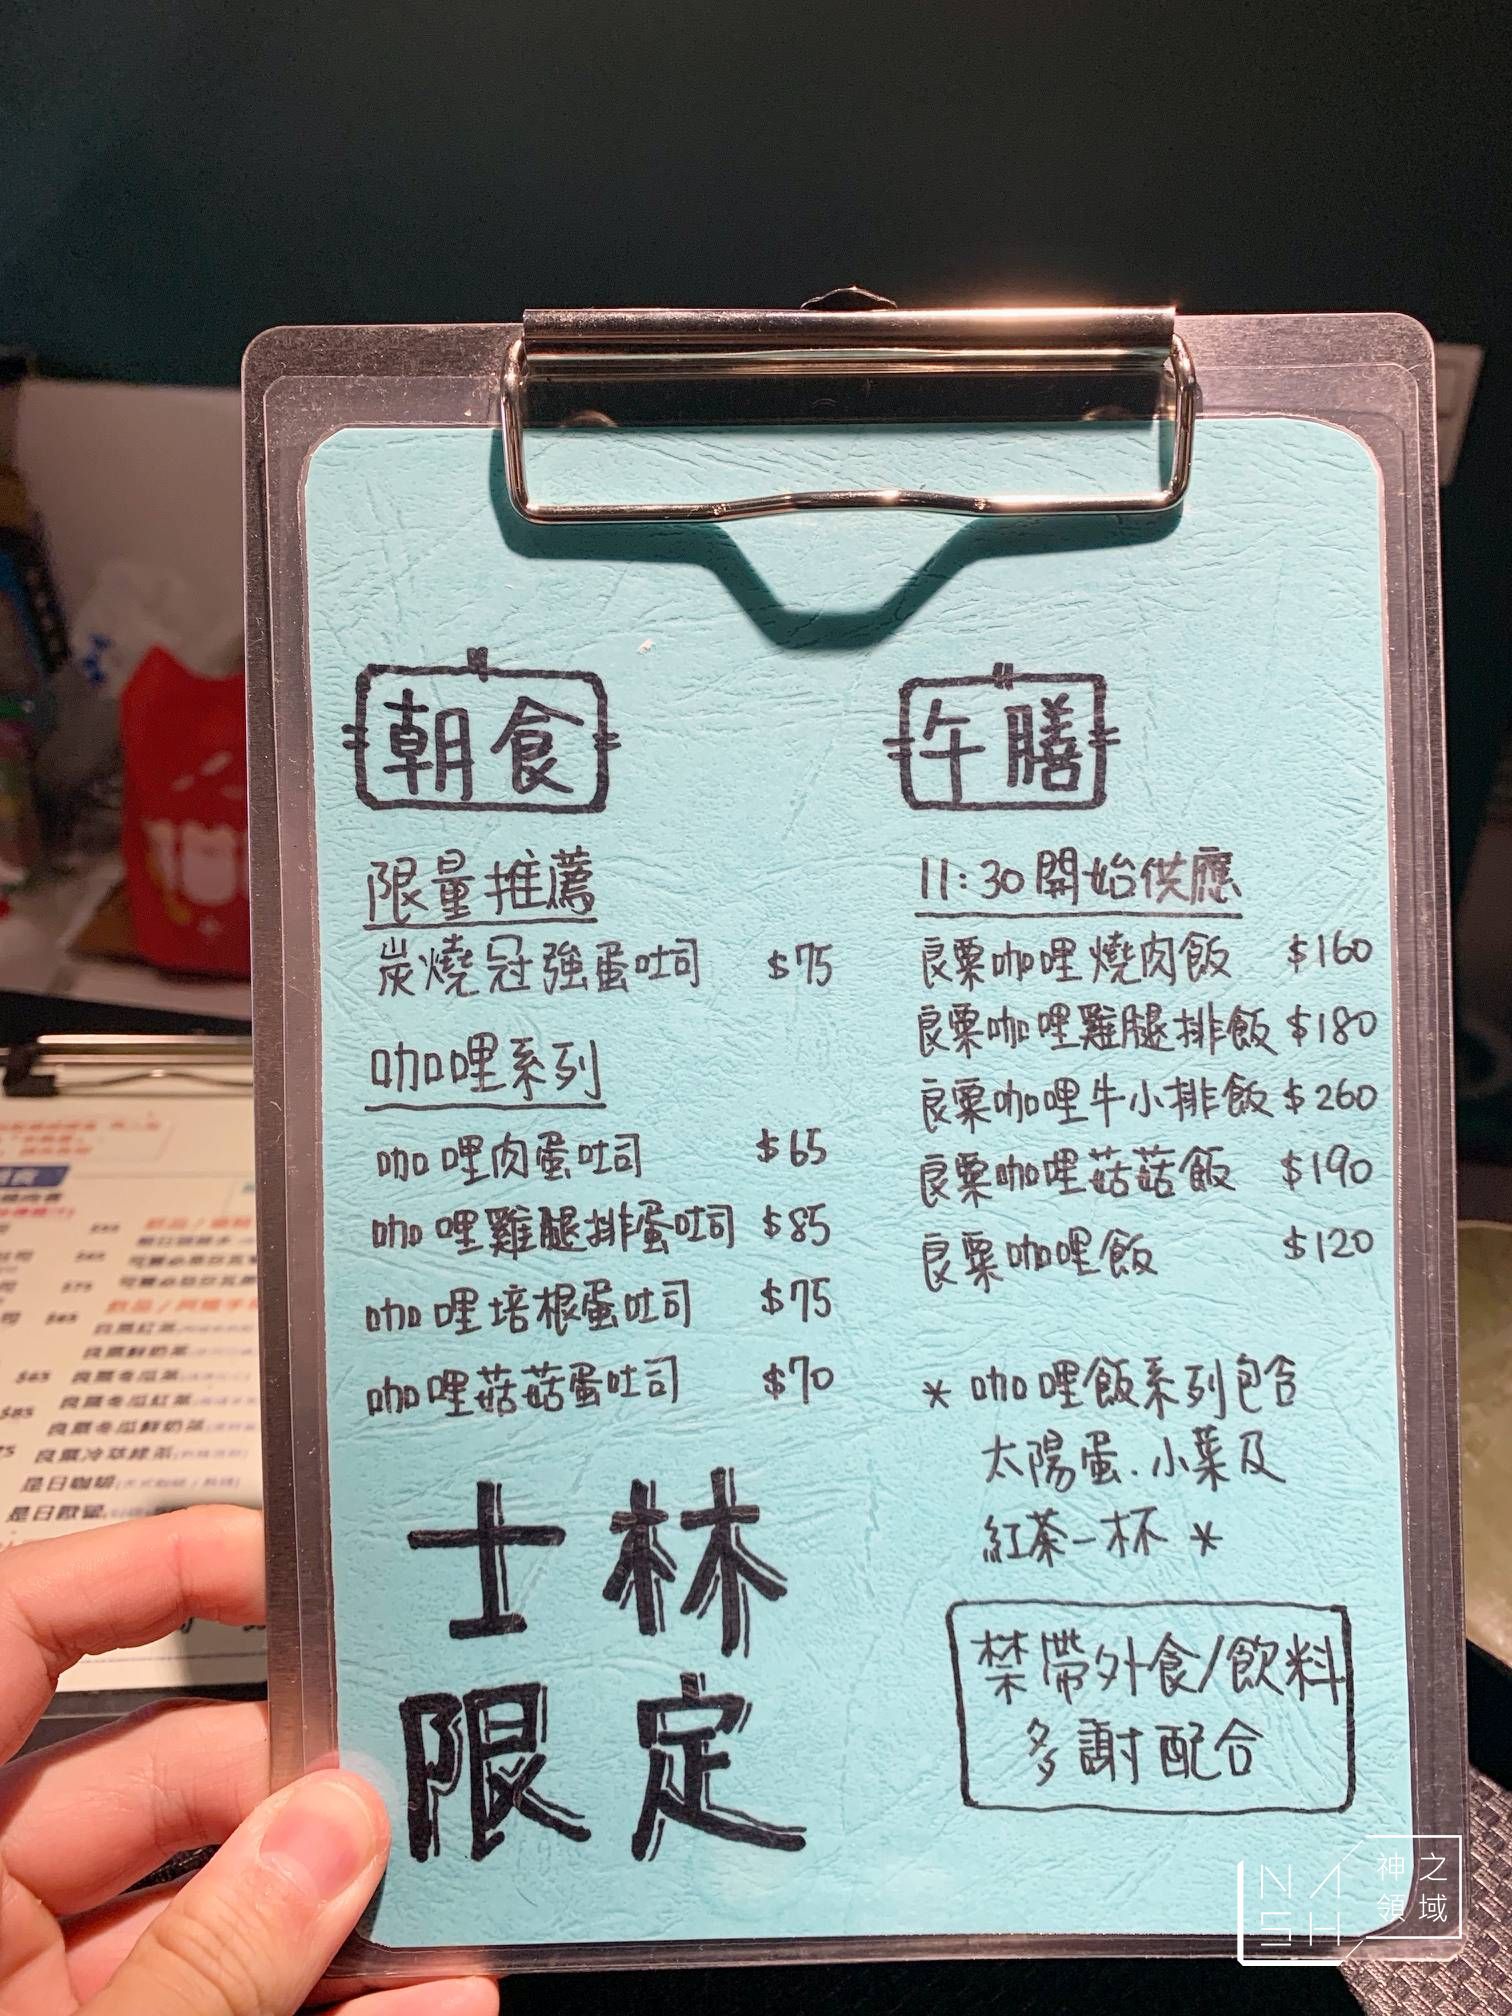 朝食
限量推薦
炭燒冠強蛋吐司 $75
咖哩系列
咖哩肉蛋吐司 $65
咖哩雞腿排蛋吐司 $85
咖哩培根蛋吐司 $75
咖哩菇菇蛋吐司 $70
士林
限定
午膳
11:30開始供應
良粟咖哩燒肉飯 $160
良粟咖哩雞腿排飯 $180
良粟咖哩牛小排飯 $260
良粟咖哩菇菇飯 $190
良粟咖哩飯 $120
* 咖哩飯系列包含
太陽蛋.小菜及
紅茶一杯 *
禁帶外食/飲料
多謝配合
NASH
神之
領域
$65
$85
$75
良粟冬瓜茶
良粟冬瓜紅茶
良粟冬瓜鮮奶茶
良粟冷萃綠茶
是日咖啡